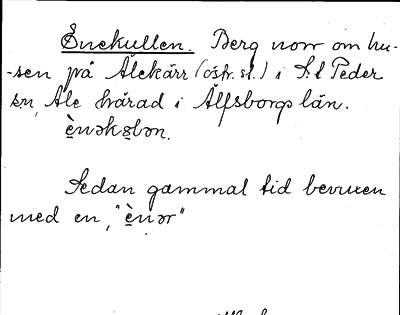 Enekullen. Berg norr om hu-
-sen på Älekärr (östr. sl.) i S:t Peder
sn, Ale härad i Älfsborgs län.
ènəkɞlən.
Sedan gammal tid bevuxen
med en, "ènər"